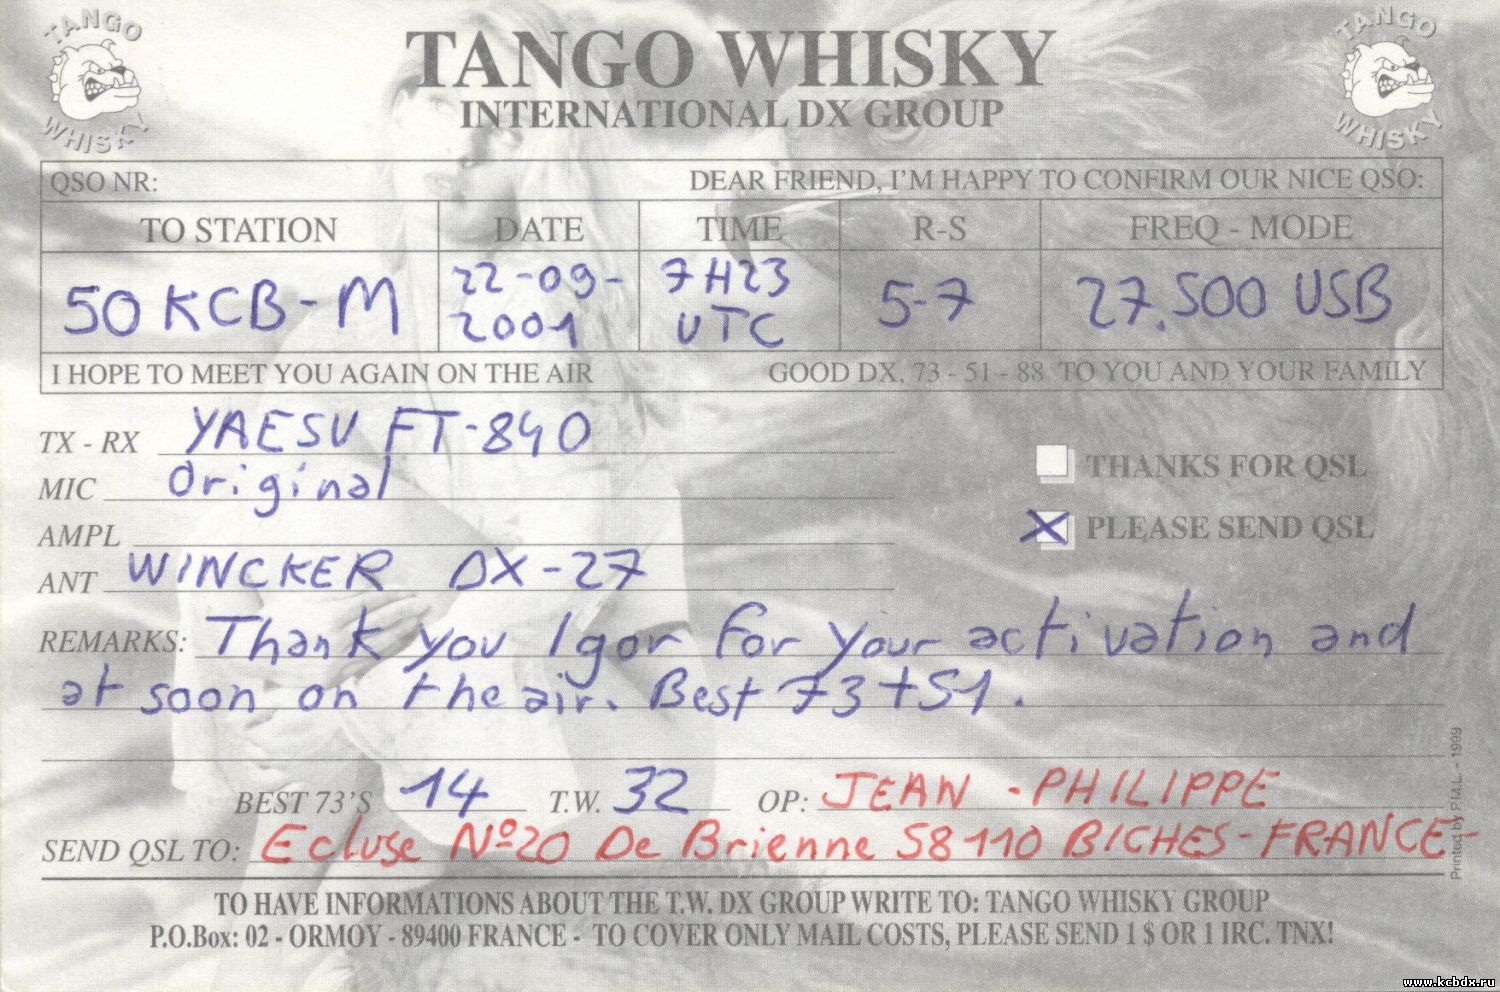 TANGO WHISKY
TANGO WHISKY
TANGO WHISKY
INTERNATIONAL DX GROUP
QSO NR: DEAR FRIEND, I'M HAPPY TO CONFIRM OUR NICE QSO:
TO STATION DATE TIME R-S FREQ - MODE
50 KCB-M 22-09-2001 7H23 UTC 5-7 27.500 USB
I HOPE TO MEET YOU AGAIN ON THE AIR GOOD DX, 73 - 51 - 88 TO YOU AND YOUR FAMILY
TX - RX YAESU FT-840
MIC Original
THANKS FOR QSL
AMPL
X PLEASE SEND QSL
ANT WINCKER DX-27
REMARKS: Thank you Igor for your activation and
at soon on the air. Best 73+51.
BEST 73'S 14 T.W. 32 OP: JEAN - PHILIPPE
SEND QSL TO: Ecluse Nº20 De Brienne 58110 BICHES-FRANCE-
TO HAVE INFORMATIONS ABOUT THE T.W. DX GROUP WRITE TO: TANGO WHISKY GROUP
P.O.Box: 02 - ORMOY - 89400 FRANCE - TO COVER ONLY MAIL COSTS, PLEASE SEND 1 $ OR 1 IRC. TNX!
Printed by P.M.L. - 1999
www.kcbdx.ru